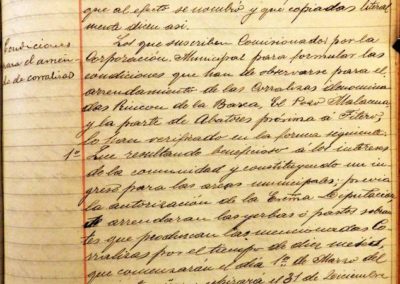 que al efecto se nombró y que copiados literal
mente dicen así.
Condiciones
para el arrien
do de corralizas
Los que suscriben Comisionados por la
Corporación Municipal para formular las
condiciones que han de observarse para el
arrendamiento de las Corralizas denomina
das Rincon de la Barca, El Pozo Malacuna
y la parte de Abatores próxima á Fitero,
lo han verificado en la forma siguiente.
1º Que resultando beneficioso á los intereses
de la comunidad y constituyendo un in
greso para las arcas municipales; previa
la autorización de la Exma Diputación
se arrendaran las yerbas ó pastos sobran
tes que produzcan las mencionadas Co
rralizas por el tiempo de diez meses,
que comenzarán el día 1º de Marzo del
31 de Diciembre